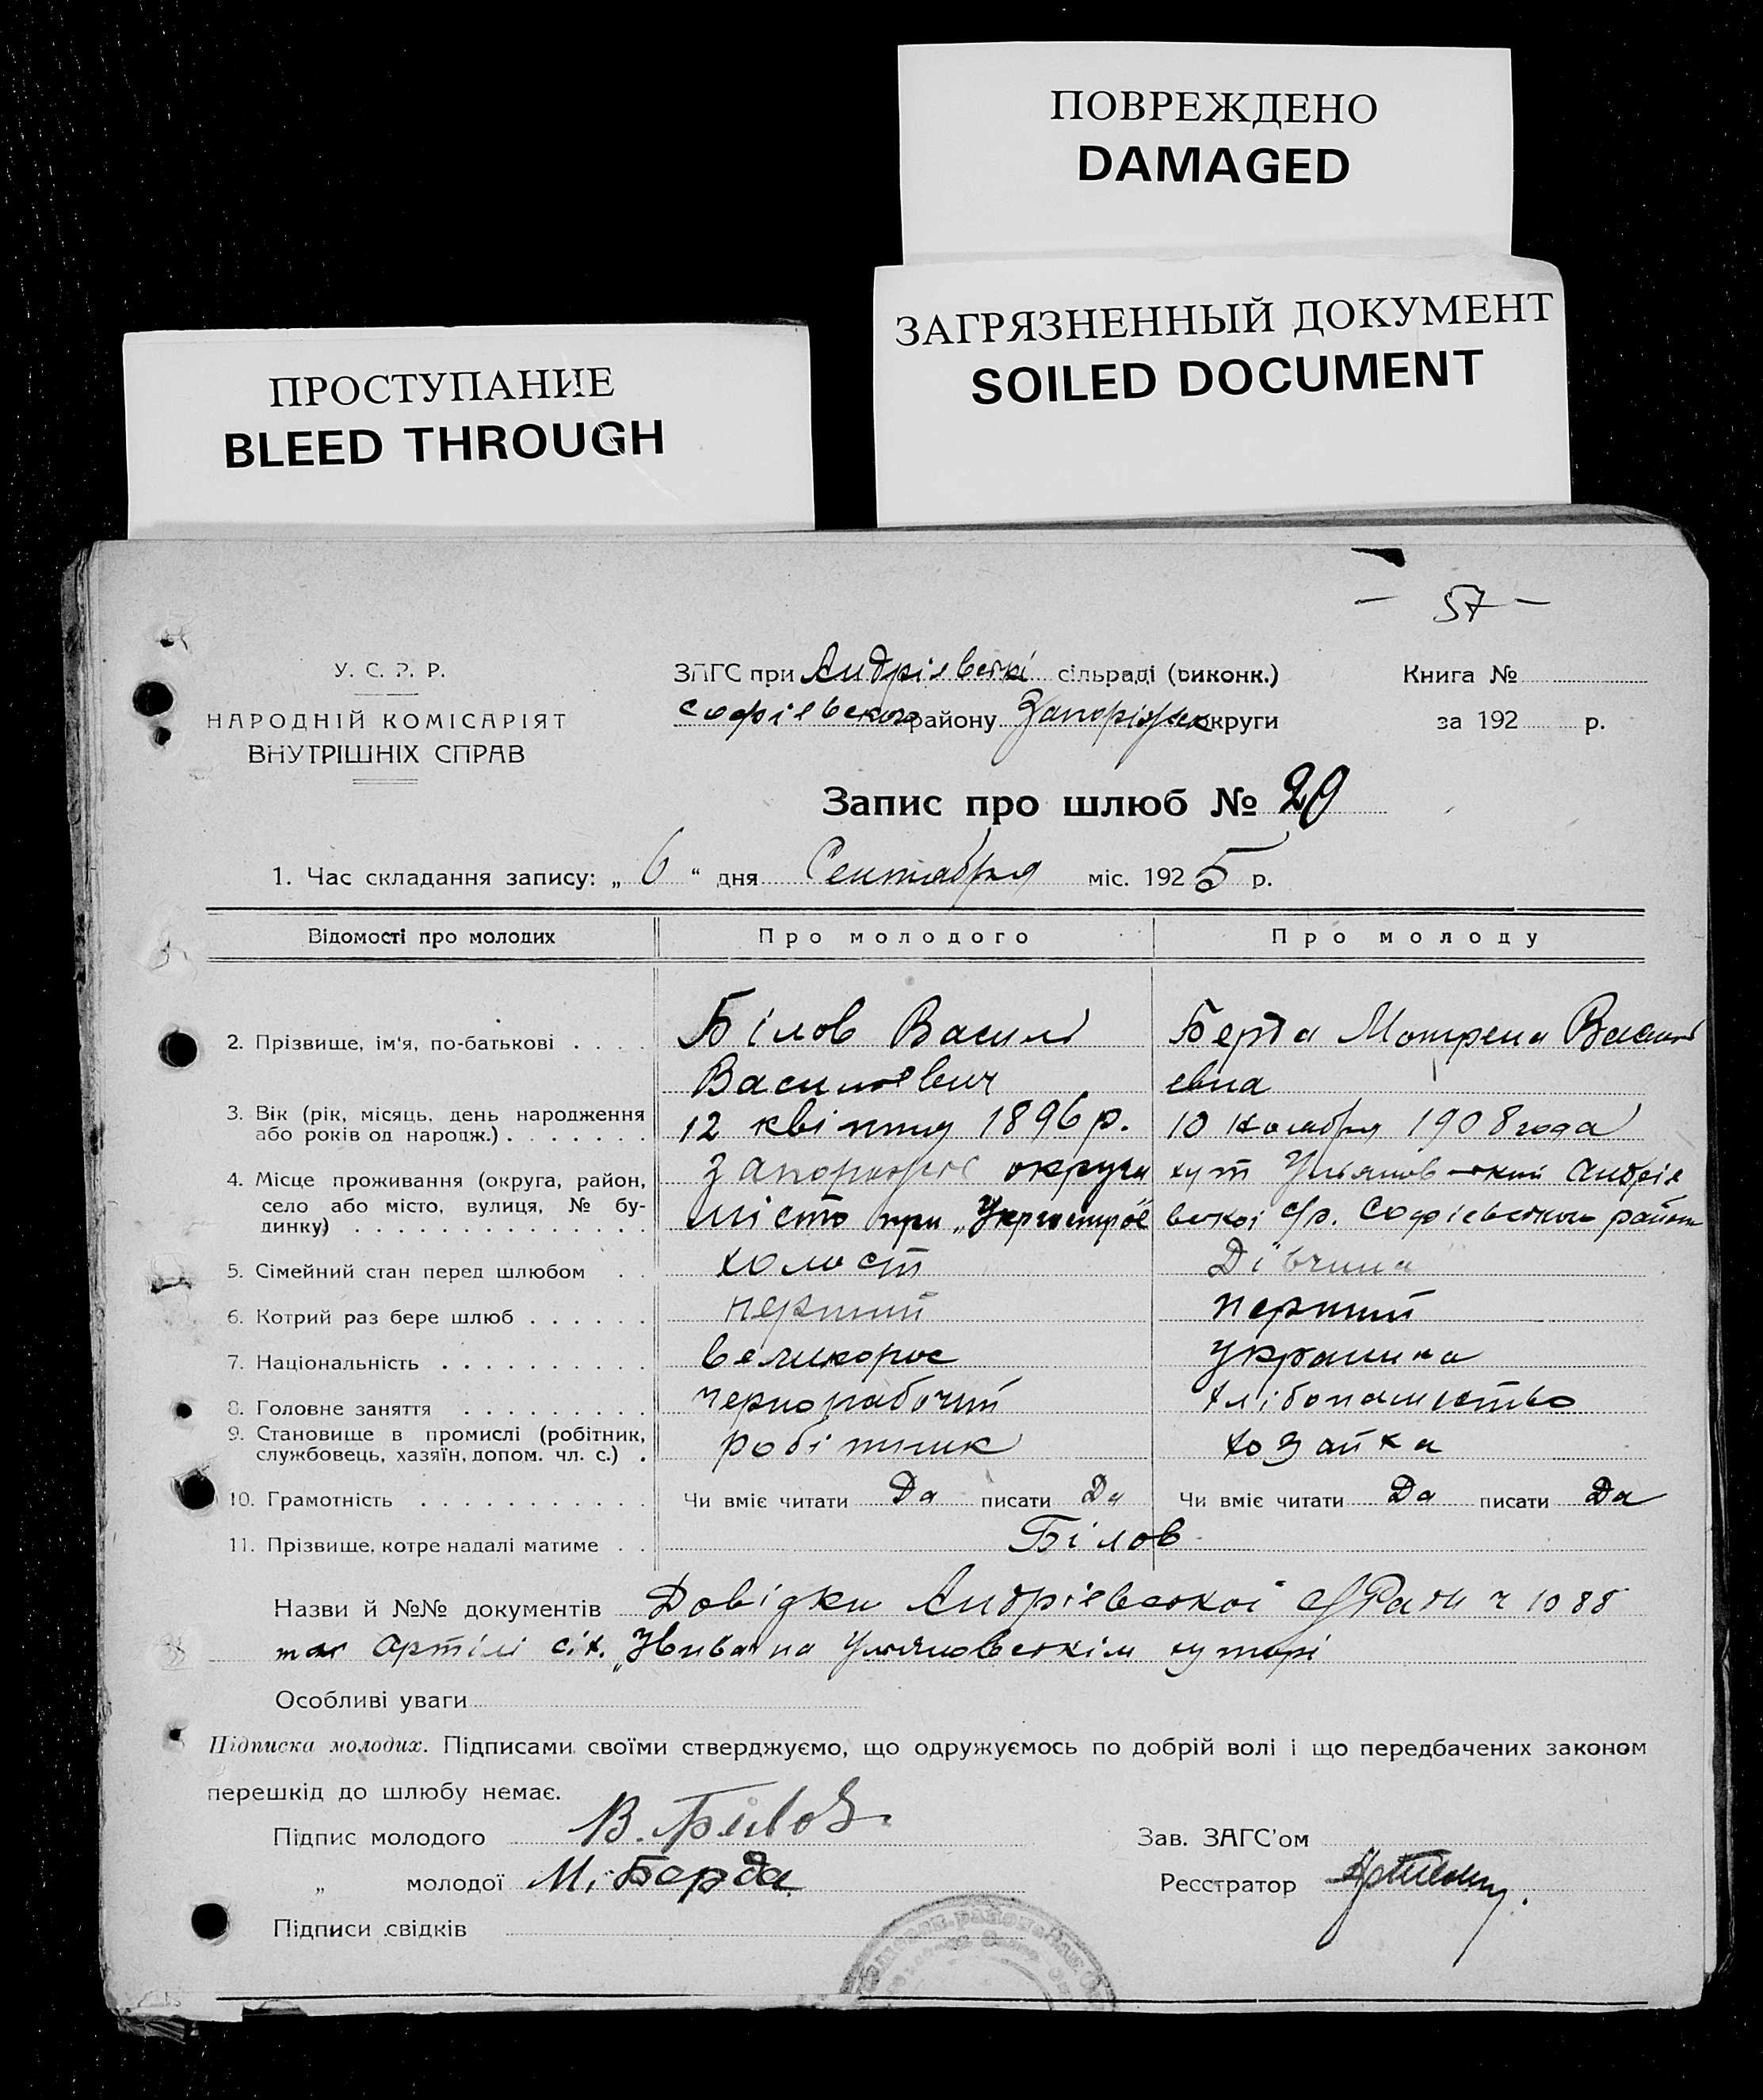 ПОВРЕЖДЕНО
DAMAGED
ЗАГРЯЗНЕННЫЙ ДОКУМЕНТ
SOILED DOCUMENT
ПРОСТУПАНИЕ
BLEED THROUGH
— 57 —
У. С. Р. Р.
НАРОДНІЙ КОМІСАРІЯТ
ВНУТРІШНІХ СПРАВ
ЗАГС при Андрієвскі сільраді (виконк.)
Софієвского району Запоріжск округи
Книга №
за 192 р.
Запис про шлюб № 20
1. Час складання запису: „ 6 “ дня Сентября міс. 1925 р.
Відомості про молодих Про молодого Про молоду
2. Прізвище, ім'я, по-батькові . . . . Білов Василь Берда Мотрена Василь
Васильевич евна
3. Вік (рік, місяць, день народження
або років од народж.) . . . . . . . 12 квітня 1896 р. 10 Ноября 1908 года
4. Місце проживання (округа, район,
село або місто, вулиця, № бу-
динку) . . . . . . . . . . . . . .
округи
місто при „Укрготрой" хут Ульяновский Андріє
вскої с/р. Софієвского району
5. Сімейний стан перед шлюбом . . холост Дівчина
6. Котрий раз бере шлюб . . . . . . перший перший
7. Національність . . . . . . . . . . великорос украинка
8. Головне заняття . . . . . . . . . чернорабочий хлібопашество
9. Становище в промислі (робітник,
службовець, хазяїн, допом. чл. с.) . робітник хозяйка
10. Грамотність . . . . . . . . . . . Чи вміє читати Да писати Да Чи вміє читати Да писати Да
11. Прізвище, котре надалі матиме . . Білов
Назви й №№ документів Довідки Андрієвскої с/Ради ч 1088
та Артілі сіх. „Нива" на Ульяновскім хуторі
Особливі уваги
Підписка молодих. Підписами своїми стверджуємо, що одружуємось по добрій волі і що передбачених законом
перешкід до шлюбу немає.
Підпис молодого В. Белов
„ молодої М. Берда
Підписи свідків
Зав. ЗАГС'ом
Реєстратор